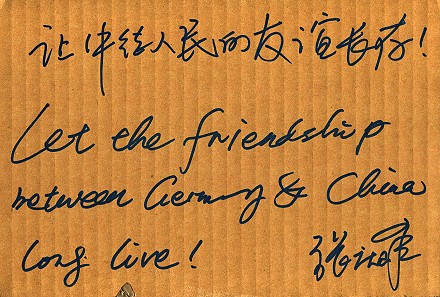 让中德人民的友谊长存!
Let the friendship
between Germany & China
long live! 张